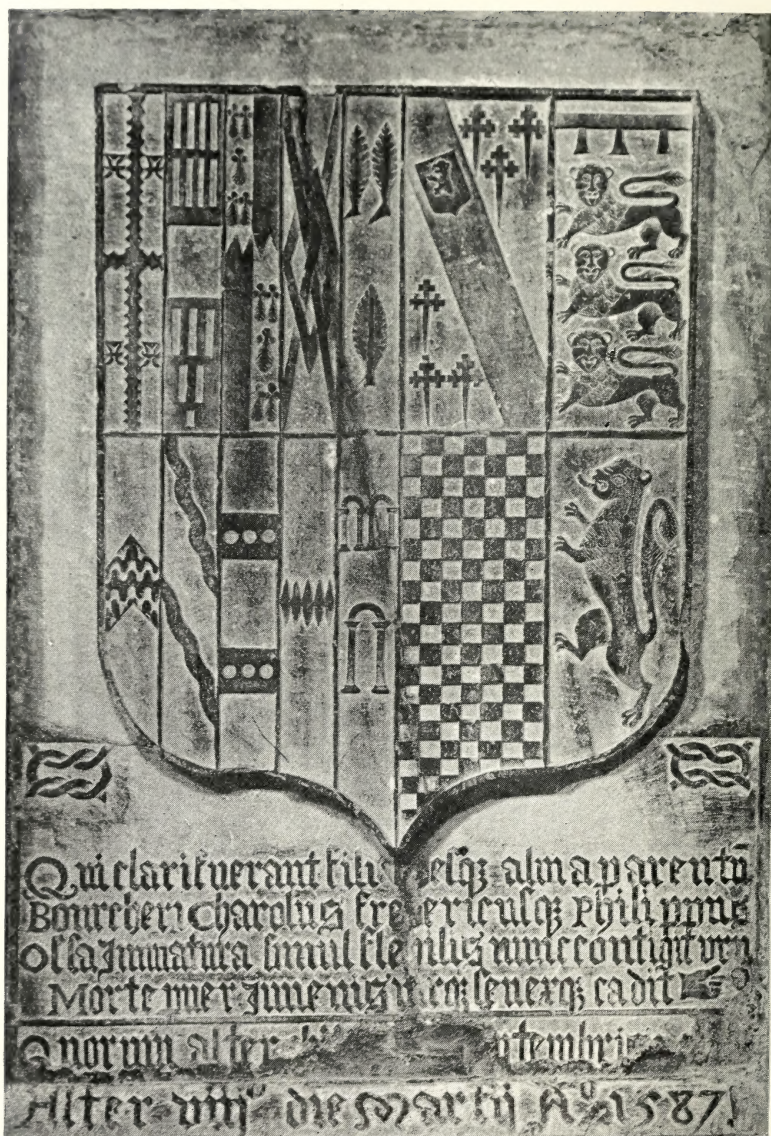 Qui clari fuerant filii spesqȝ alma parentū
Bourcheri Charolus Fredericusqȝ Philippus
Ossa Immatura simul flebilis nunc contigit urna
Morte puer Juvenis senexqȝ cadit
Quorum alter Septembris
Alter viijº die Martij Aº 1587